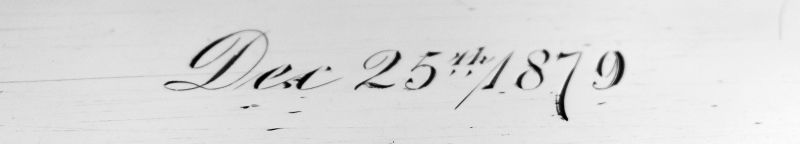 Dec 25th/1879